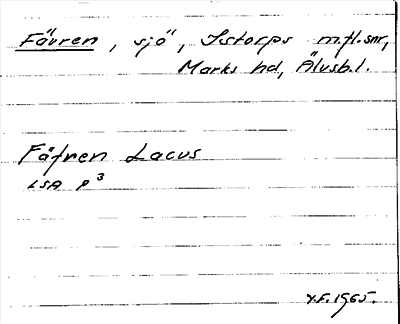 Fävren, sjö, Istorps m.fl. snr,
Marks hd, Älvsb. l.
Fäfren Lacus
LSA P³
Y.F. 1965.